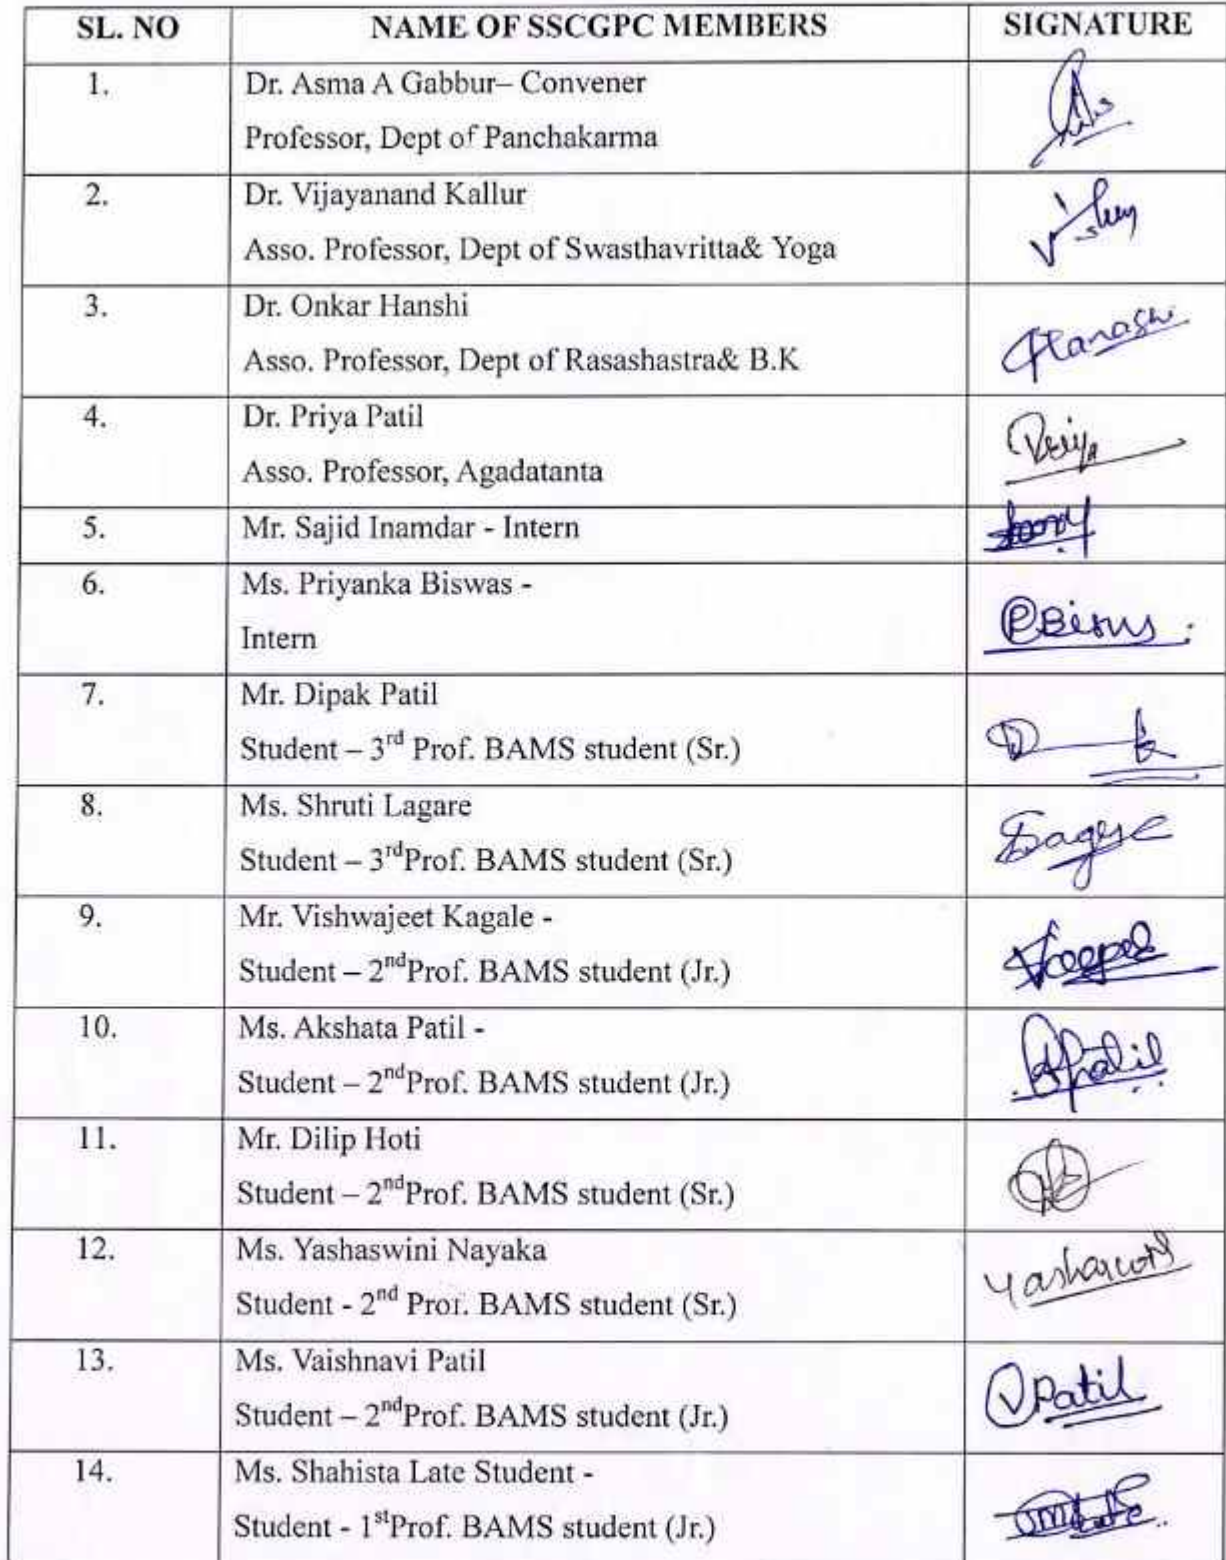 SL. NO NAME OF SSCGPC MEMBERS SIGNATURE
1. Dr. Asma A Gabbur– Convener
Professor, Dept of Panchakarma
2. Dr. Vijayanand Kallur
Asso. Professor, Dept of Swasthavritta& Yoga
3. Dr. Onkar Hanshi
Asso. Professor, Dept of Rasashastra& B.K
Hanashi
4. Dr. Priya Patil
Asso. Professor, Agadatanta
Priya
5. Mr. Sajid Inamdar - Intern
6. Ms. Priyanka Biswas -
Intern
7. Mr. Dipak Patil
Student – 3rd Prof. BAMS student (Sr.)
8. Ms. Shruti Lagare
Student – 3rdProf. BAMS student (Sr.)
9. Mr. Vishwajeet Kagale -
Student – 2ndProf. BAMS student (Jr.)
10. Ms. Akshata Patil -
Student – 2ndProf. BAMS student (Jr.)
APatil
11. Mr. Dilip Hoti
Student – 2ndProf. BAMS student (Sr.)
12. Ms. Yashaswini Nayaka
Student - 2nd Prof. BAMS student (Sr.)
13. Ms. Vaishnavi Patil
Student – 2ndProf. BAMS student (Jr.)
VPatil
14. Ms. Shahista Late Student -
Student - 1stProf. BAMS student (Jr.)